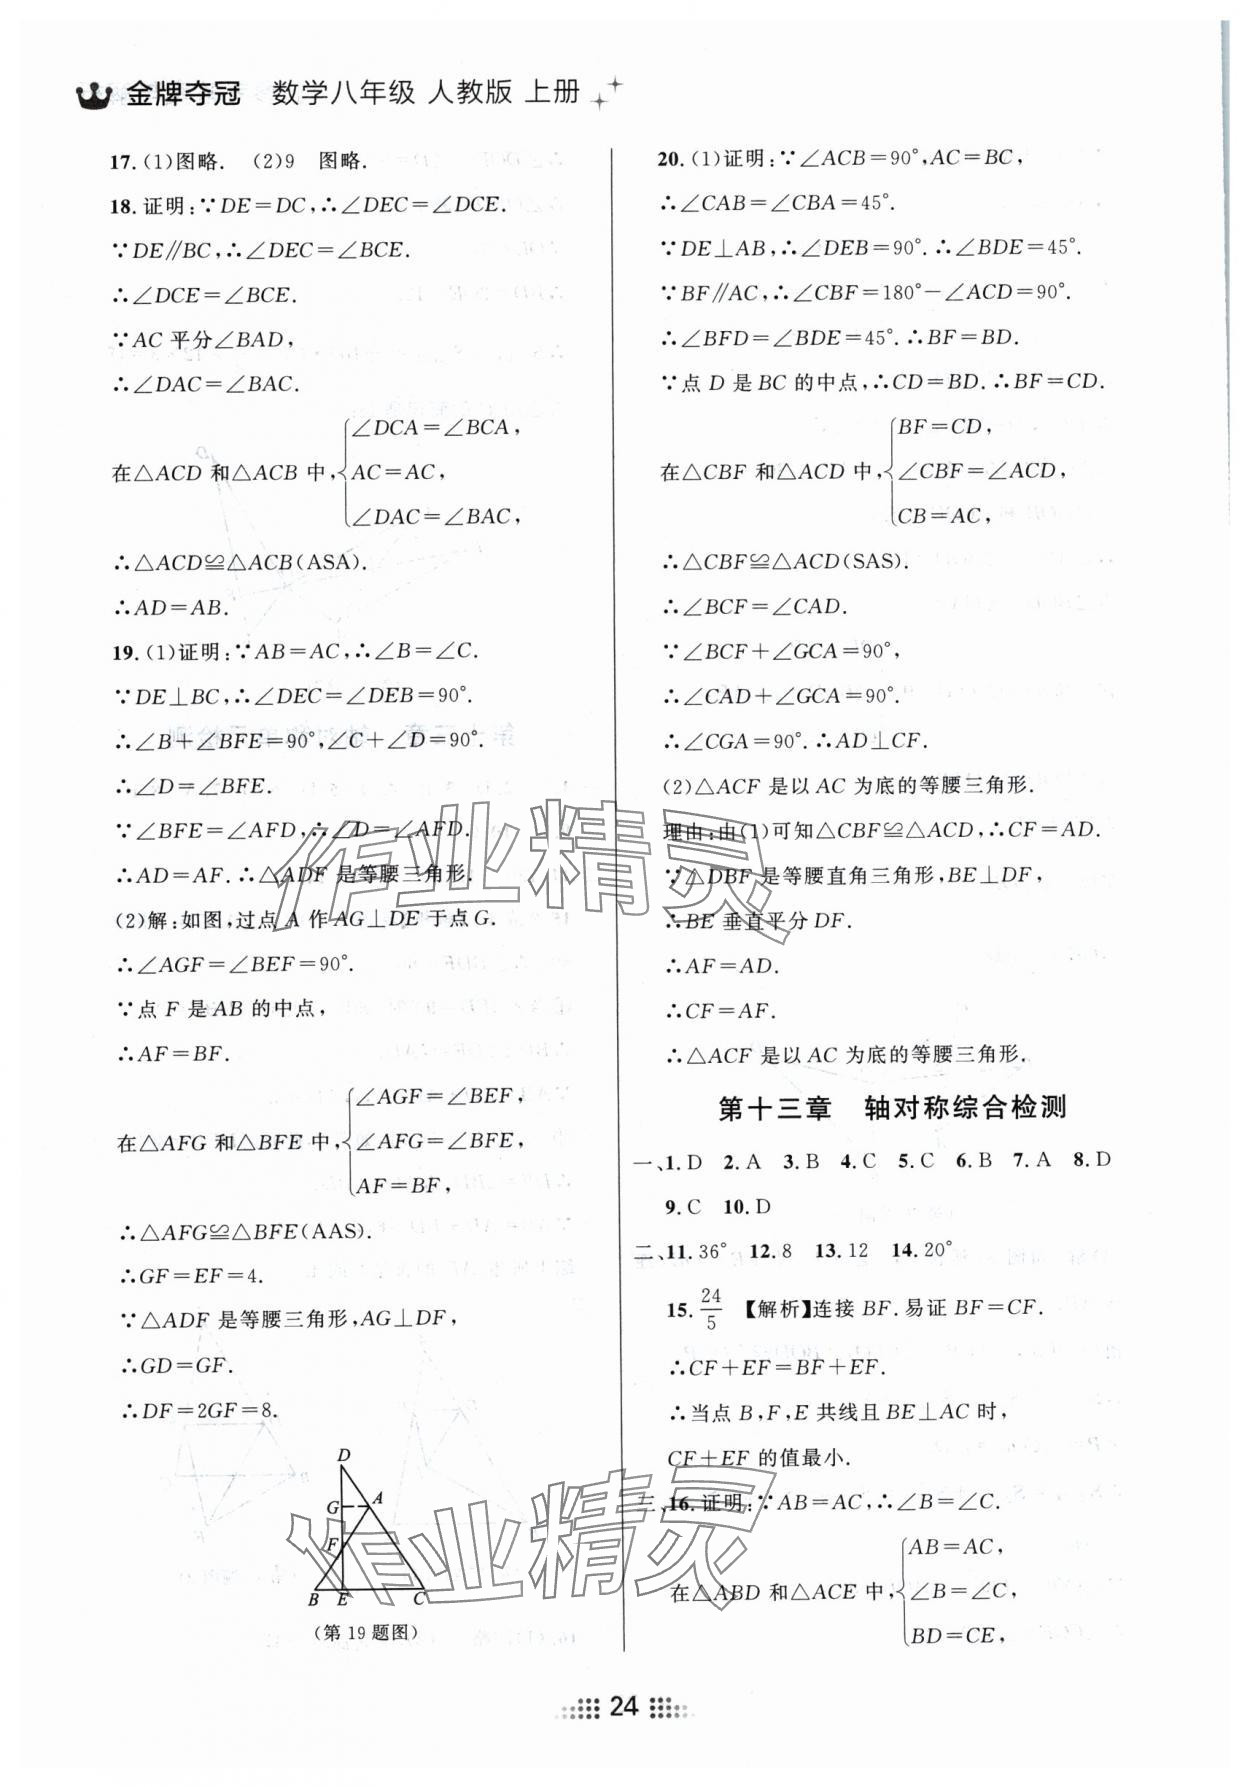 金牌夺冠 数学八年级 人教版 上册
17.(1)图略. (2)9 图略.
18.证明:∵DE=DC,∴∠DEC=∠DCE.
∵DE∥BC,∴∠DEC=∠BCE.
∴∠DCE=∠BCE.
∵AC平分∠BAD,
∴∠DAC=∠BAC.
在△ACD和△ACB中,
∠DCA=∠BCA,
AC=AC,
∠DAC=∠BAC,
∴△ACD≌△ACB(ASA).
∴AD=AB.
19.(1)证明:∵AB=AC,∴∠B=∠C.
∵DE⊥BC,∴∠DEC=∠DEB=90°.
∴∠B+∠BFE=90°,∠C+∠D=90°.
∴∠D=∠BFE.
∵∠BFE=∠AFD,∴∠D=∠AFD.
∴AD=AF.∴△ADF是等腰三角形.
(2)解:如图,过点A作AG⊥DE于点G.
∴∠AGF=∠BEF=90°.
∵点F是AB的中点,
∴AF=BF.
在△AFG和△BFE中,
∠AGF=∠BEF,
∠AFG=∠BFE,
AF=BF,
∴△AFG≌△BFE(AAS).
∴GF=EF=4.
∵△ADF是等腰三角形,AG⊥DF,
∴GD=GF.
∴DF=2GF=8.
D
G A
F
B E C
(第19题图)
20.(1)证明:∵∠ACB=90°,AC=BC,
∴∠CAB=∠CBA=45°.
∵DE⊥AB,∴∠DEB=90°.∴∠BDE=45°.
∵BF∥AC,∴∠CBF=180°-∠ACD=90°.
∴∠BFD=∠BDE=45°.∴BF=BD.
∵点D是BC的中点,∴CD=BD.∴BF=CD.
在△CBF和△ACD中,
BF=CD,
∠CBF=∠ACD,
CB=AC,
∴△CBF≌△ACD(SAS).
∴∠BCF=∠CAD.
∵∠BCF+∠GCA=90°,
∴∠CAD+∠GCA=90°.
∴∠CGA=90°.∴AD⊥CF.
(2)△ACF是以AC为底的等腰三角形.
理由:由(1)可知△CBF≌△ACD,∴CF=AD.
∵△DBF是等腰直角三角形,BE⊥DF,
∴BE垂直平分DF.
∴AF=AD.
∴CF=AF.
∴△ACF是以AC为底的等腰三角形.
第十三章 轴对称综合检测
一、1.D 2.A 3.B 4.C 5.C 6.B 7.A 8.D
9.C 10.D
二、11.36° 12.8 13.12 14.20°
15.24/5 【解析】连接BF.易证BF=CF.
∴CF+EF=BF+EF.
∴当点B,F,E共线且BE⊥AC时,
CF+EF的值最小.
三、16.证明:∵AB=AC,∴∠B=∠C.
在△ABD和△ACE中,
AB=AC,
∠B=∠C,
BD=CE,
24
作业精灵
作业精灵